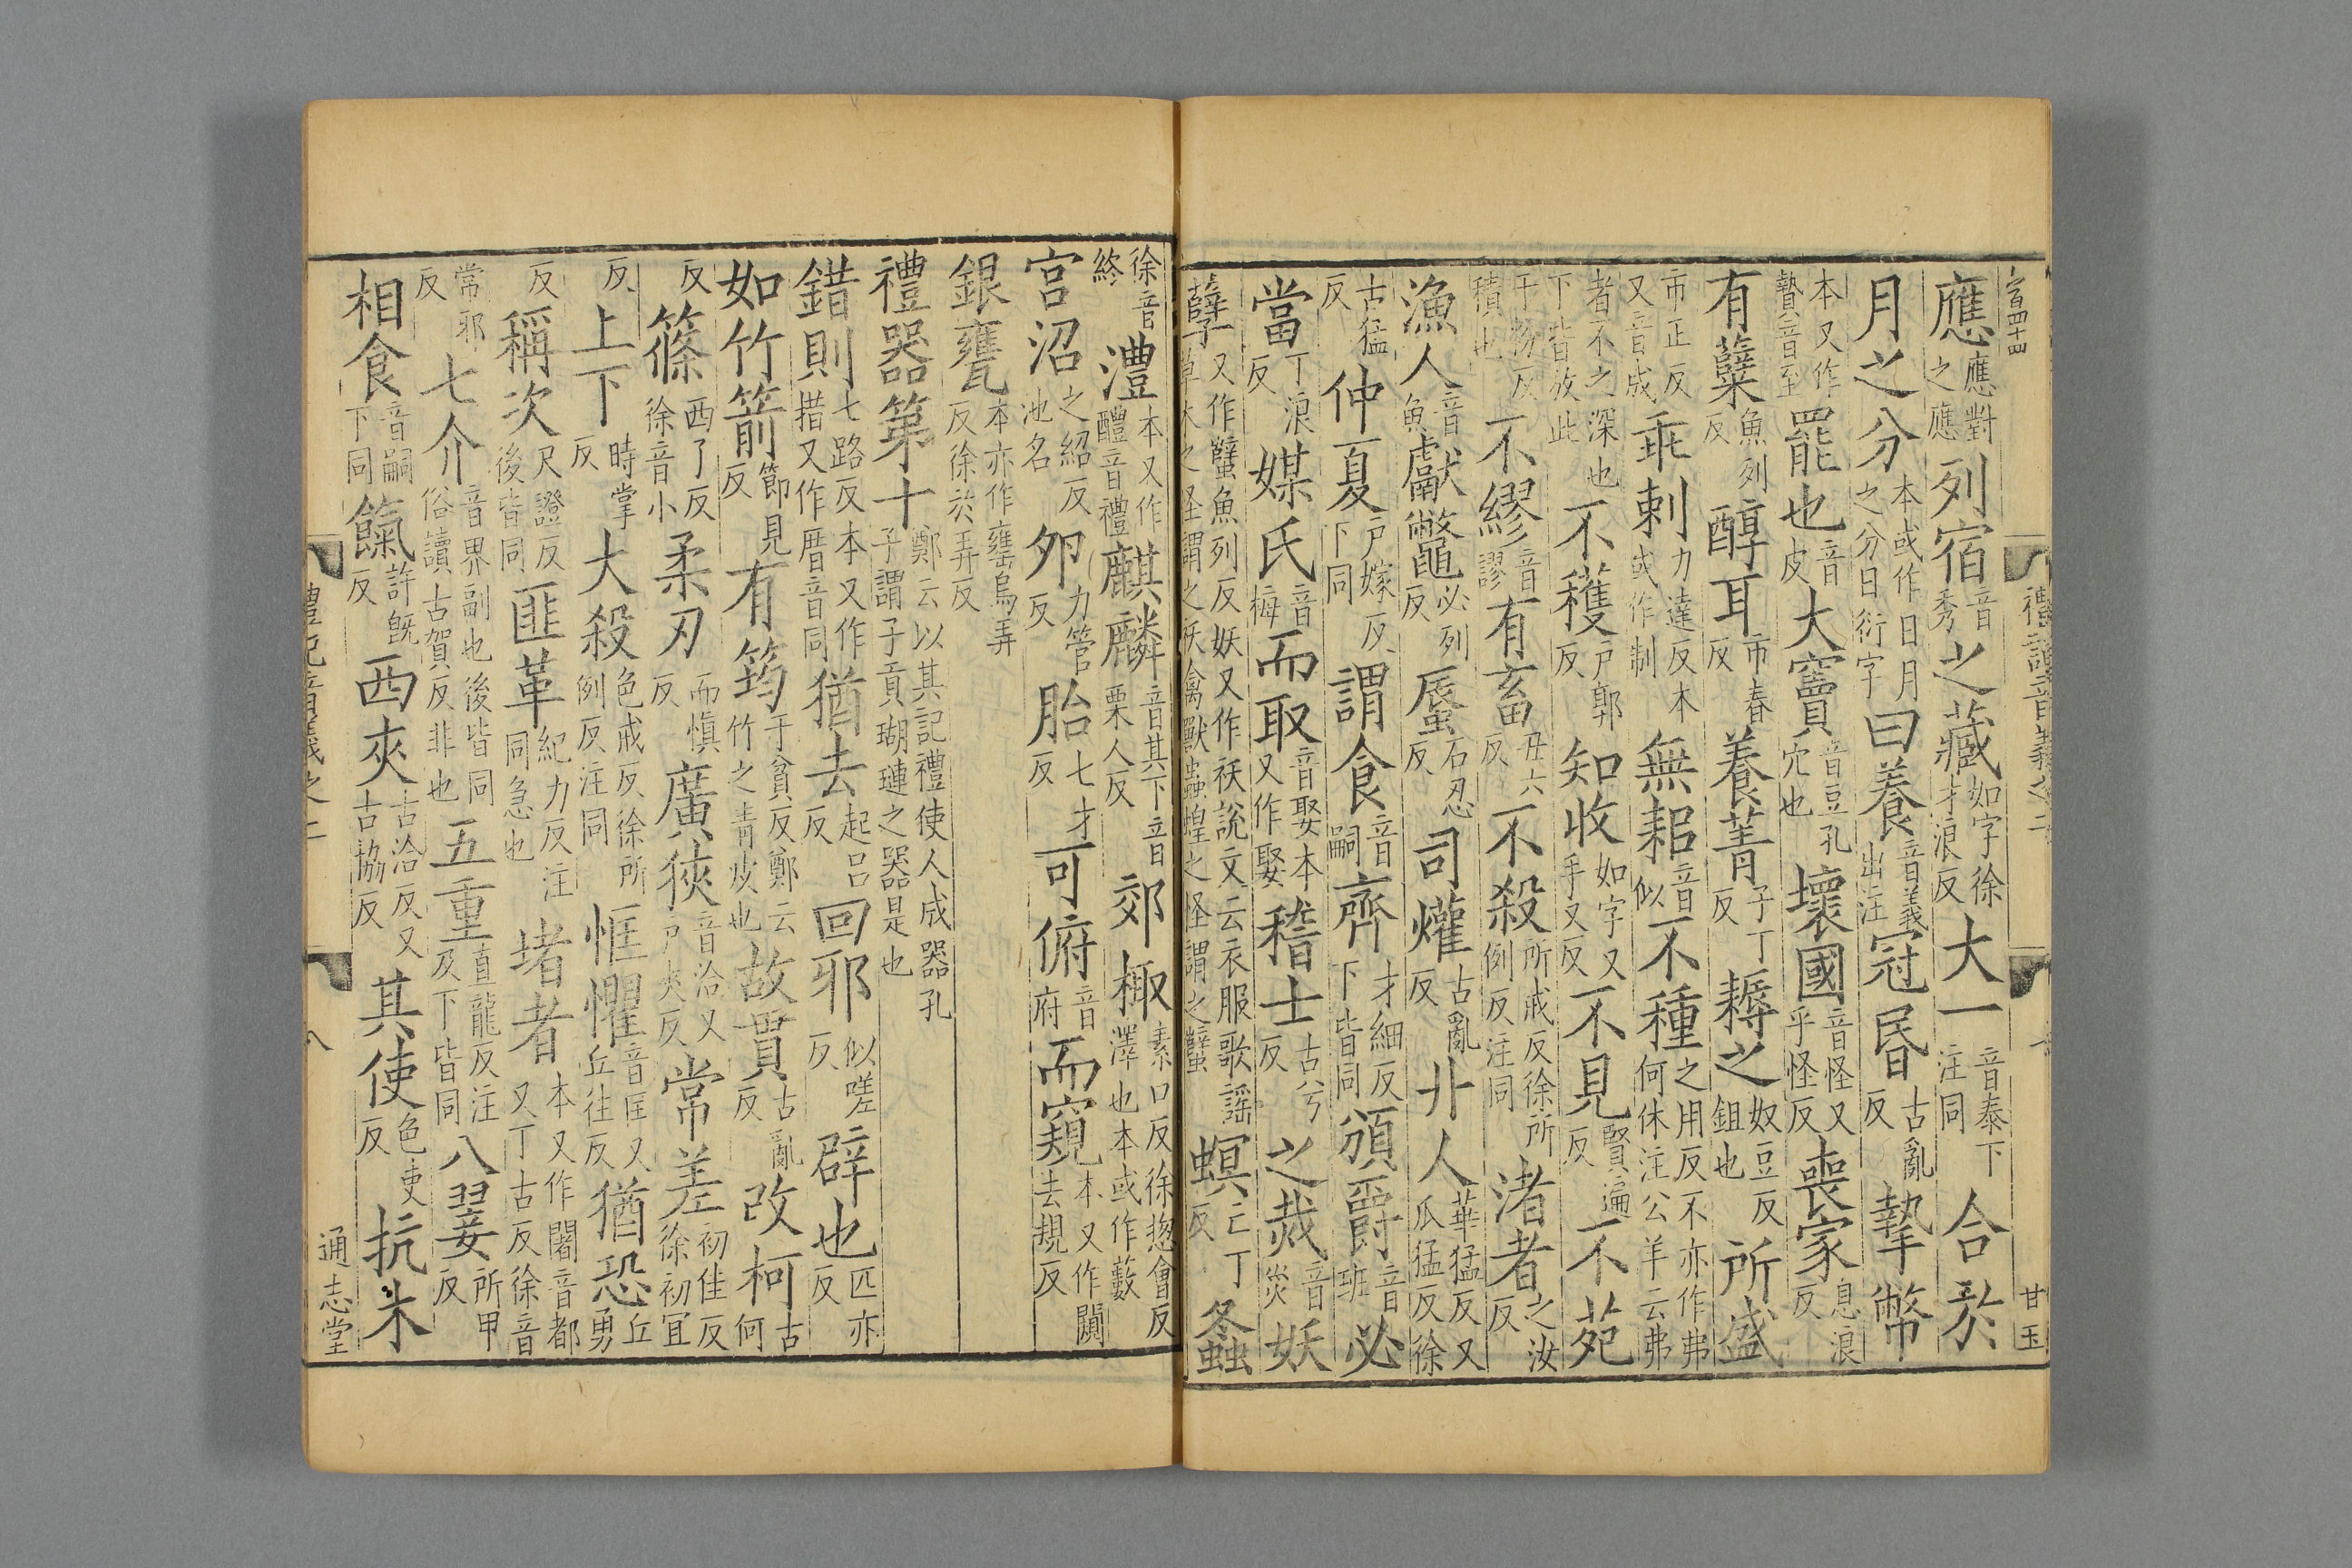 應應對之應列宿音秀之藏如字徐才浪反大一音泰下注同合於
月之分本或作日月之分日衍字曰養音義出注冠昬古亂反摯幣
本又作贄音至罷也音皮大竇音豆孔穴也壞國音怪又乎怪反喪家息浪反
有糱魚列反醇耳市春反養菁子丁反耨之奴豆反鉏也所盛
市正反又音成乖剌力達反本或作制無耜音似不種之用反不亦作弗何休注公羊云弗
者不之深也下皆放此不穫戸郭反知收如字又手又反不見賢遍反不苑
于粉反積也不繆音謬有畜丑六反不殺所戒反徐所例反注同渚者之汝反
漁人音魚獻鼈必列反蜃石忍反司爟古亂反丱人華猛反又瓜猛反徐
古猛反仲夏戸嫁反下同謂食音嗣齊才細反下皆同頒爵音班必
當丁浪反媒氏音梅而取音娶本又作娶稽士古兮反之烖音災妖
孽又作蠥魚列反妖又作祅說文云衣服歌謠草木之怪謂之祅禽獸蟲蝗之怪謂之蠥螟亡丁反螽
徐音終澧本又作醴音禮麒麟音其下音栗人反郊棷素口反徐揔會反澤也本或作藪
宮沼之紹反池名卵力管反胎七才反可俯音府而窺本又作闚去規反
銀甕本亦作罋烏弄反徐於弄反
禮器第十鄭云以其記禮使人成器孔子謂子貢瑚璉之器是也
錯則七路反本又作措又作厝音同猶去起呂反回邪似嗟反辟也匹亦反
如竹箭節見反有筠于貧反鄭云竹之青皮也故貫古亂反改柯古何
反篠西了反徐音小柔刃而愼反廣狹音洽又戸夾反常差初佳反徐初冝
反上下時掌反大殺色戒反徐所例反注同恇懼音匡又丘往反猶恐丘勇
反稱次尺證反後皆同匪革紀力反注同急也堵者本又作闍音都又丁古反徐音
常邪反七介音界副也後皆同俗讀古賀反非也五重直龍反注及下皆同八翣所甲反
相食音嗣下同餼許旣反西夾古洽反又古協反其使色吏反抗木
通志堂